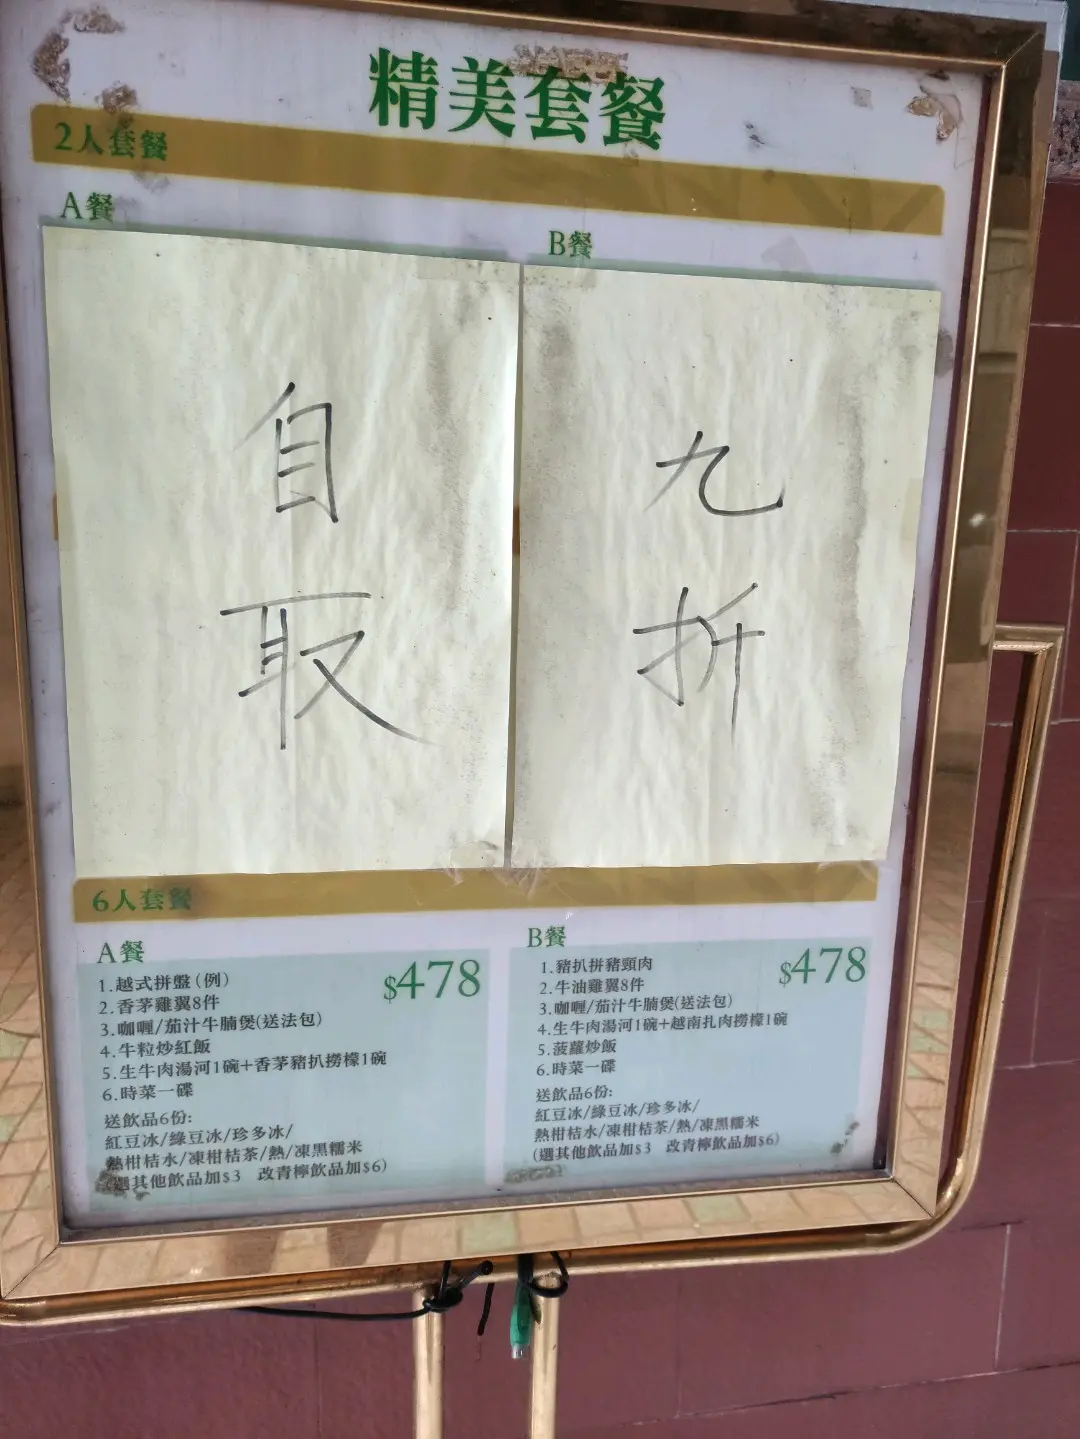 精美套餐
2人套餐
A餐
B餐
自
取
九
折
6人套餐
A餐
$478
1.越式拼盤(例)
2.香茅雞翼8件
3.咖喱/茄汁牛腩煲(送法包)
4.牛粒炒紅飯
5.生牛肉湯河1碗+香茅豬扒撈檬1碗
6.時菜一碟
送飲品6份:
紅豆冰/綠豆冰/珍多冰/
熱柑桔水/凍柑桔茶/熱/凍黑糯米
(選其他飲品加$3 改青檸飲品加$6)
B餐
$478
1.豬扒拼豬頸肉
2.牛油雞翼8件
3.咖喱/茄汁牛腩煲(送法包)
4.生牛肉湯河1碗+越南扎肉撈檬1碗
5.菠蘿炒飯
6.時菜一碟
送飲品6份:
紅豆冰/綠豆冰/珍多冰/
熱柑桔水/凍柑桔茶/熱/凍黑糯米
(選其他飲品加$3 改青檸飲品加$6)